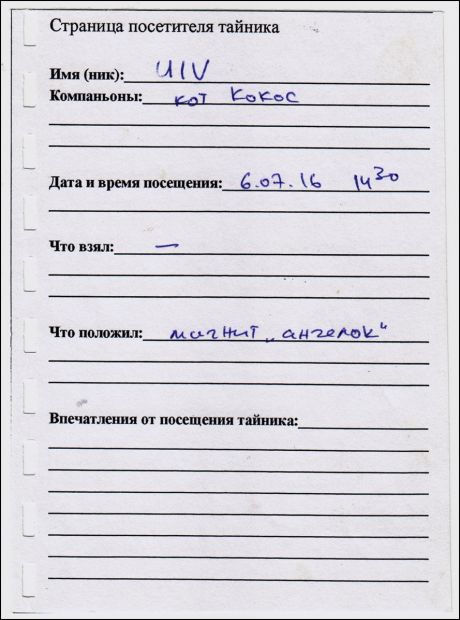 Страница посетителя тайника
Имя (ник): UIV
Компаньоны: кот Кокос
Дата и время посещения: 6.07.16 14 30
Что взял: —
Что положил: магнит „ангелок"
Впечатления от посещения тайника: